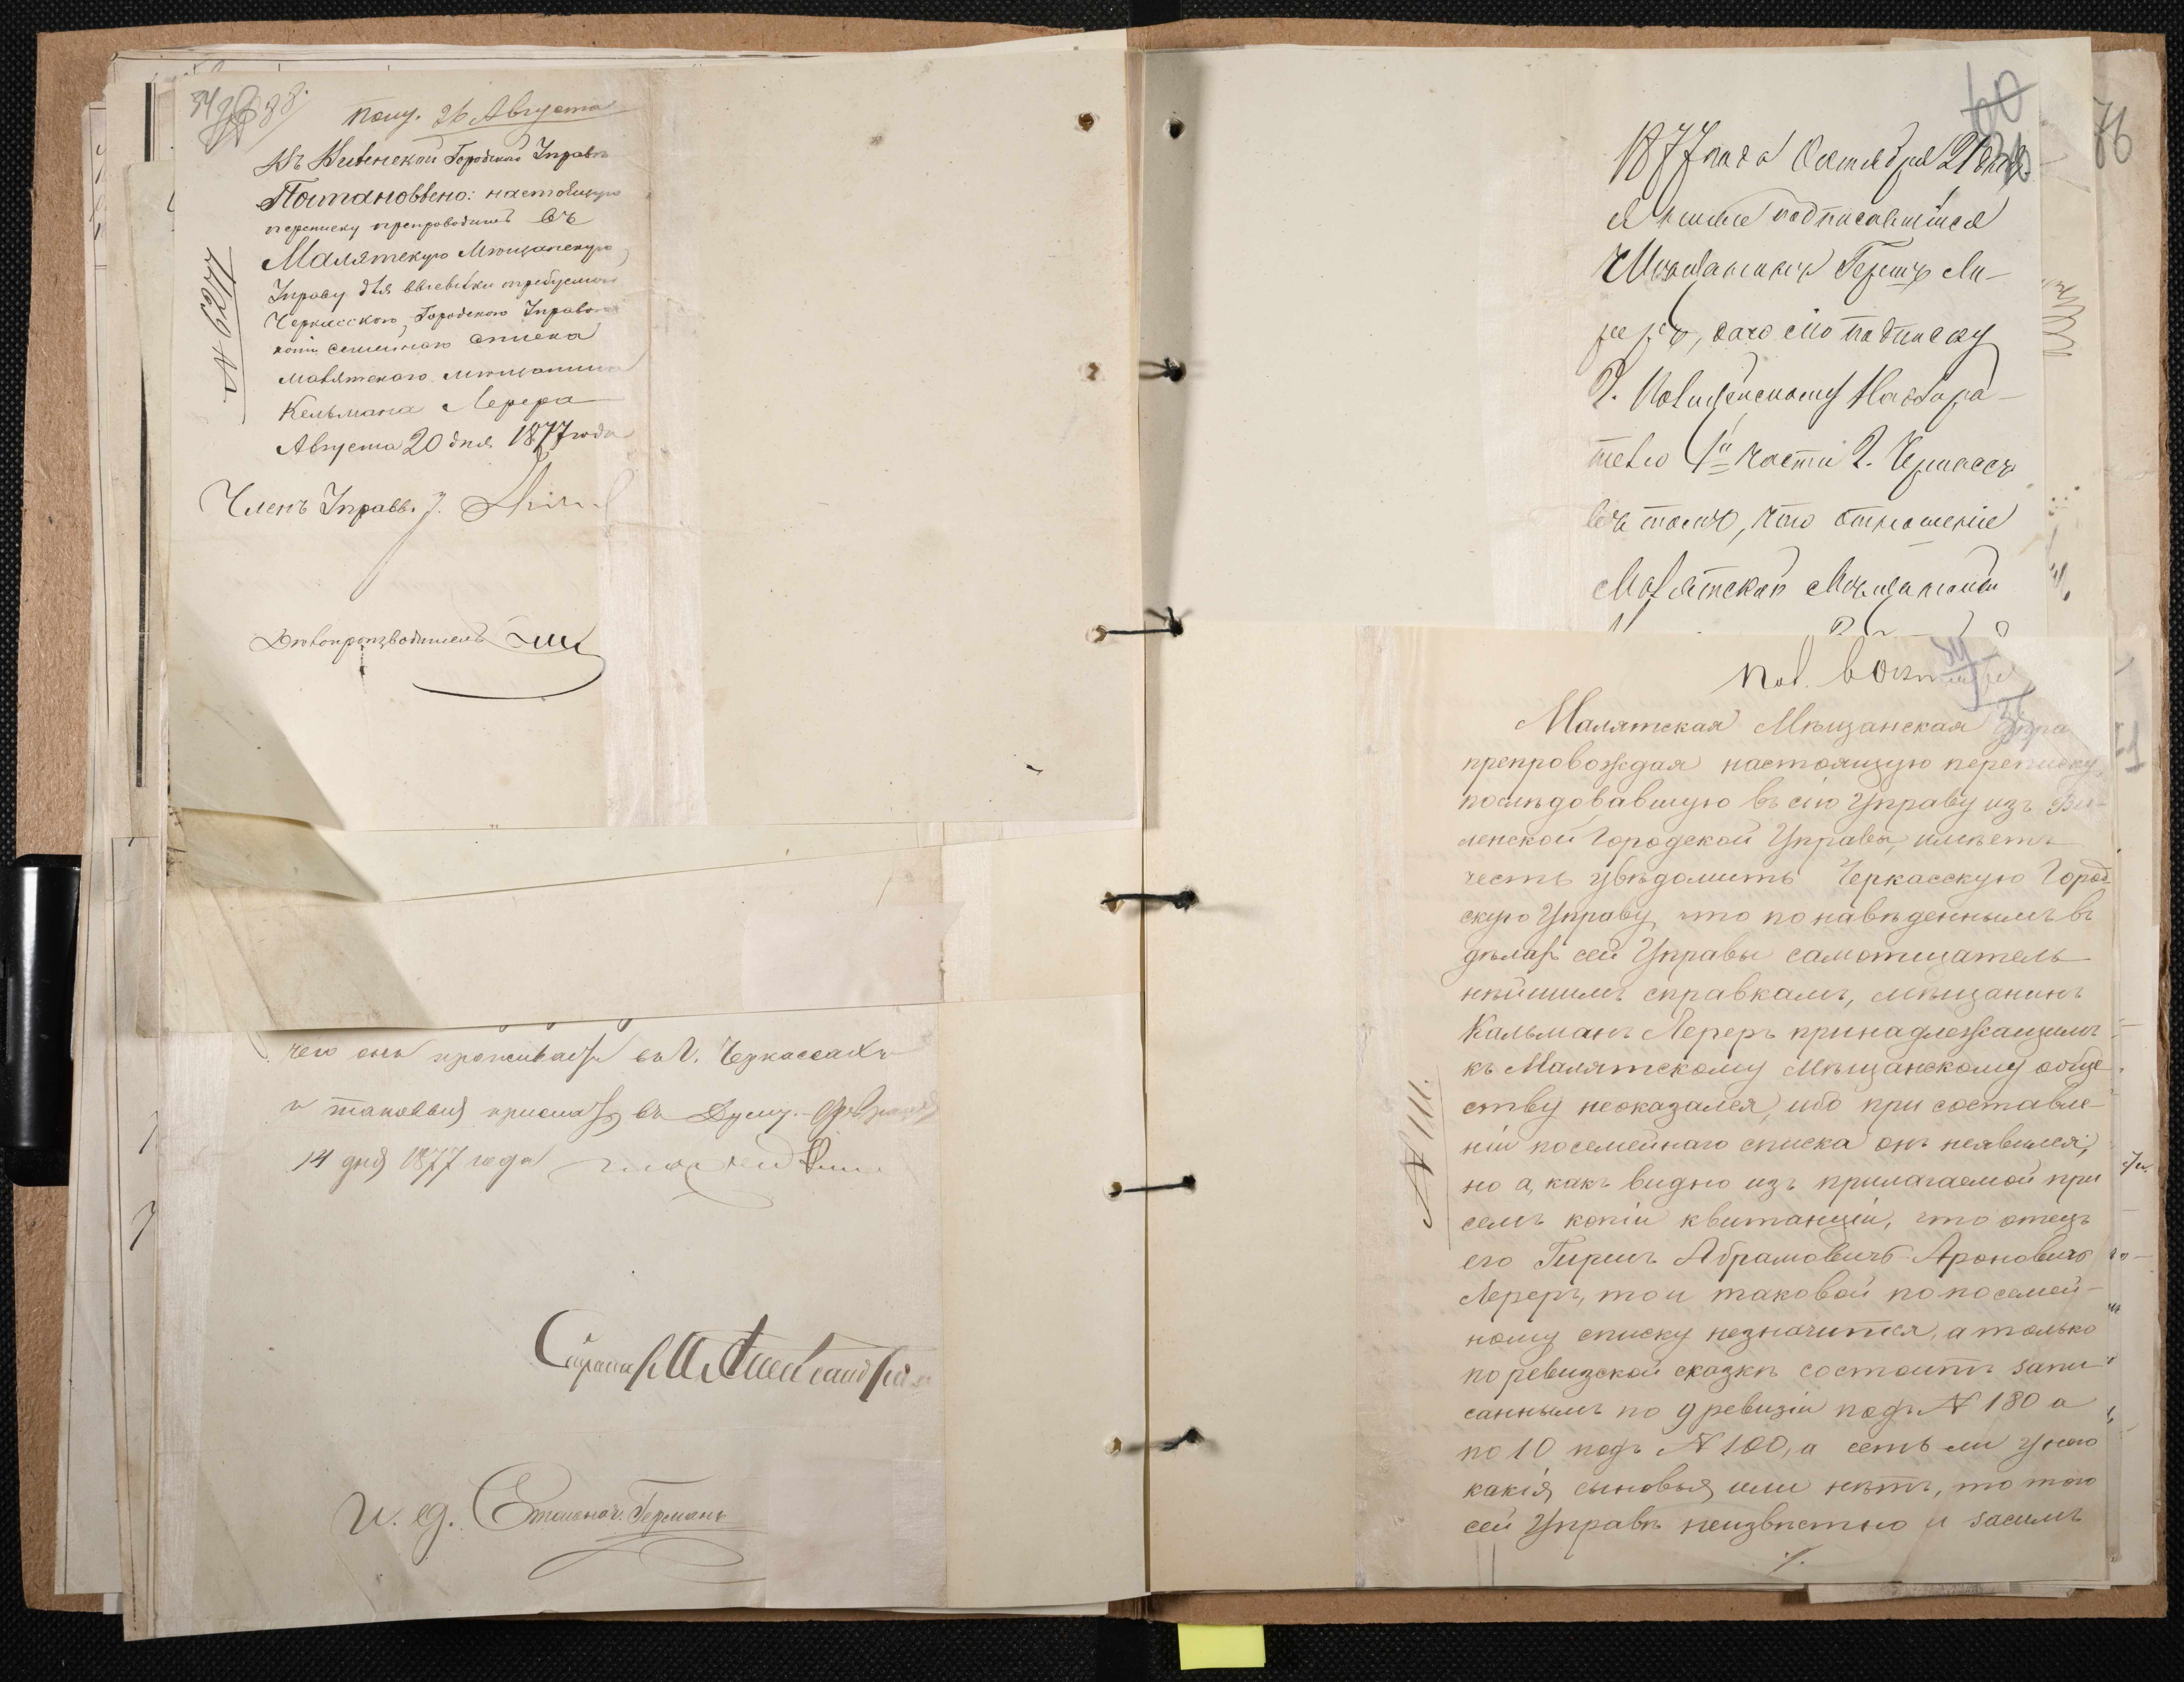 пощ. 26 Августа
Въ Виленской Городской Управѣ
Постановлено: настоящую
переписку препроводить въ
Малятскую Мѣщанскую
Управу для высылки требуемой
Черкасскою Городскою Управою
копіи семейнаго списка
малятскаго мѣщанина
Кельмана Лерера
Августа 20 дня 1877 года
Членъ Управы
Дѣлопроизводитель
№ 6277
чего онъ проживаетъ въ г. Черкассахъ
и таковый прислать въ Думу. Февраля
14 дня 1877 года
И. д. Столонач. Германъ
60
76
1877 года Октября 21 дня
я нижеподписавшійся
Мѣщанинъ Гершъ Ле-
реръ, даю сію подписку
Г. Полицейскому Надзира-
телю 1й части г. Черкассъ
въ томъ, что отношеніе
Малятской Мѣщанской
Пол. 6 Октября
Малятская Мѣщанская Упра
препровождая настоящую переписку,
послѣдовавшую въ сію Управу изъ Ви-
ленской Городской Управы, имѣетъ
честь увѣдомить Черкасскую Город-
скую Управу, что по наведеннымъ въ
дѣлахъ сей Управы самотщатель
нѣйшимъ справкамъ, мѣщанинъ
Кальманъ Лереръ принадлежащимъ
къ Малятскому Мѣщанскому обще
ству неоказался, ибо при составле-
ніи посемейнаго списка онъ неявился,
но а, какъ видно изъ прилагаемой при
семъ копіи квитанціи, что отецъ
его Гиршъ Абрамовичъ Ароновичъ
Лереръ, то и таковой по посемей-
ному списку незначится, а только
по ревизской сказкѣ состоитъ запи
саннымъ по 9 ревизіи подъ № 180 а
по 10 подъ № 100, а есть ли у него
какія сыновья или нѣтъ, то того
сей Управѣ неизвѣстно и засимъ
№ 111.